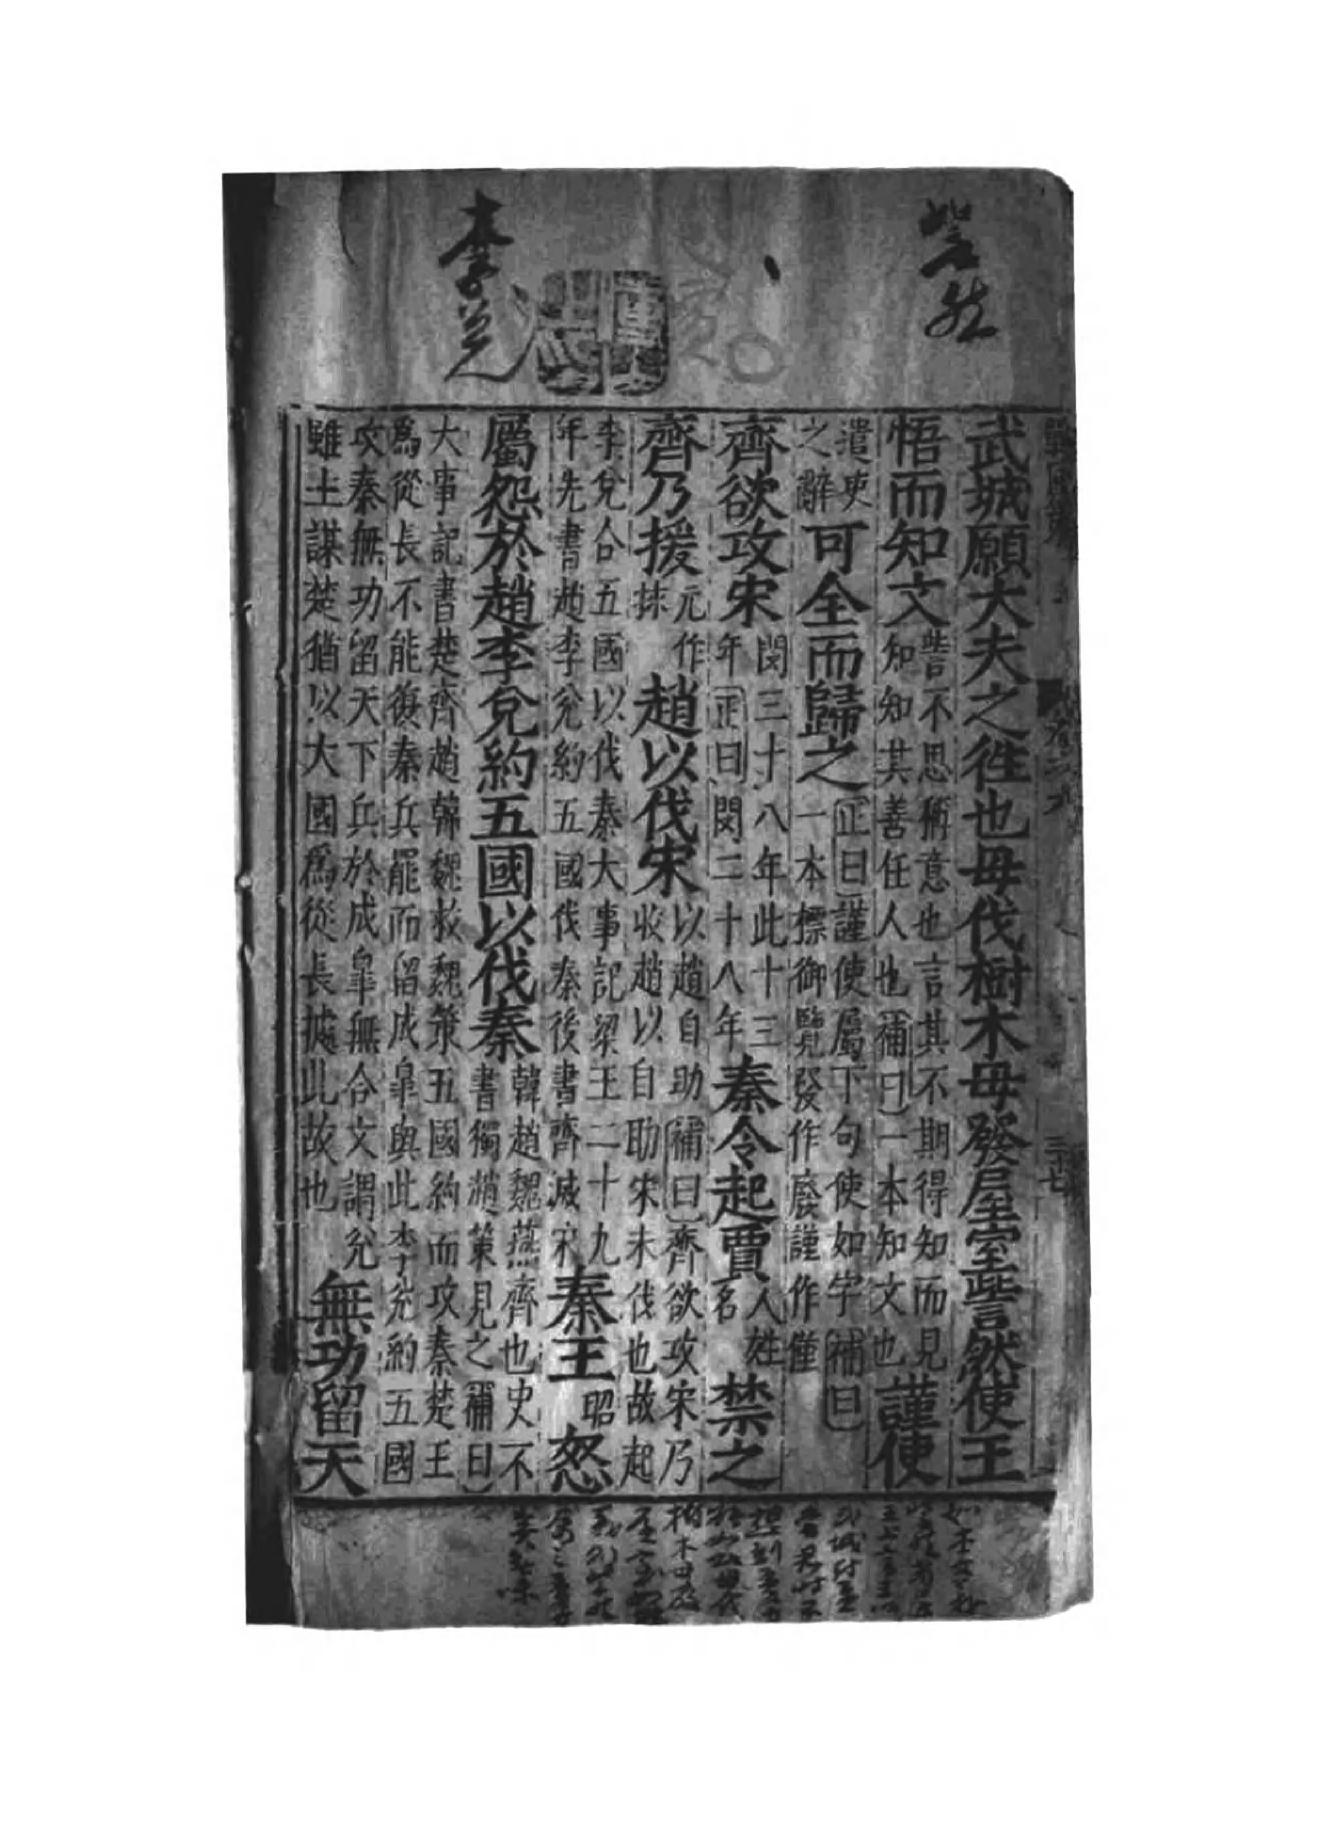 訾然
李兊
武城願大夫之徃也毋伐樹木毋發屋室訾然使王
悟而知文訾不思稱意也言其不期得知而見知知其善任人也補曰一本知文也謹使
遣吏之辭可全而歸之正曰謹使屬下句使如字補曰一本標御覽發作廢謹作僅
齊欲攻宋閔三十八年此十三年正曰閔二十八年秦令起賈人姓名禁之
齊乃援元作抹趙以伐宋以趙自助補曰齊欲攻宋乃收趙以自助宋未伐也故起
李兊合五國以伐秦大事記梁王二十九年先書趙李兊約五國伐秦後書齊滅宋秦王昭怒
屬怨於趙李兊約五國以伐秦韓趙魏燕齊也史不書獨趙策見之補曰
大事記書楚齊趙韓魏救魏策五國約而攻秦楚王爲從長不能復秦兵罷而留成皐與此李兊約五國
攻秦無功留天下兵於成皐無合文謂兊雖主謀楚猶以大國爲從長據此故也無功留天